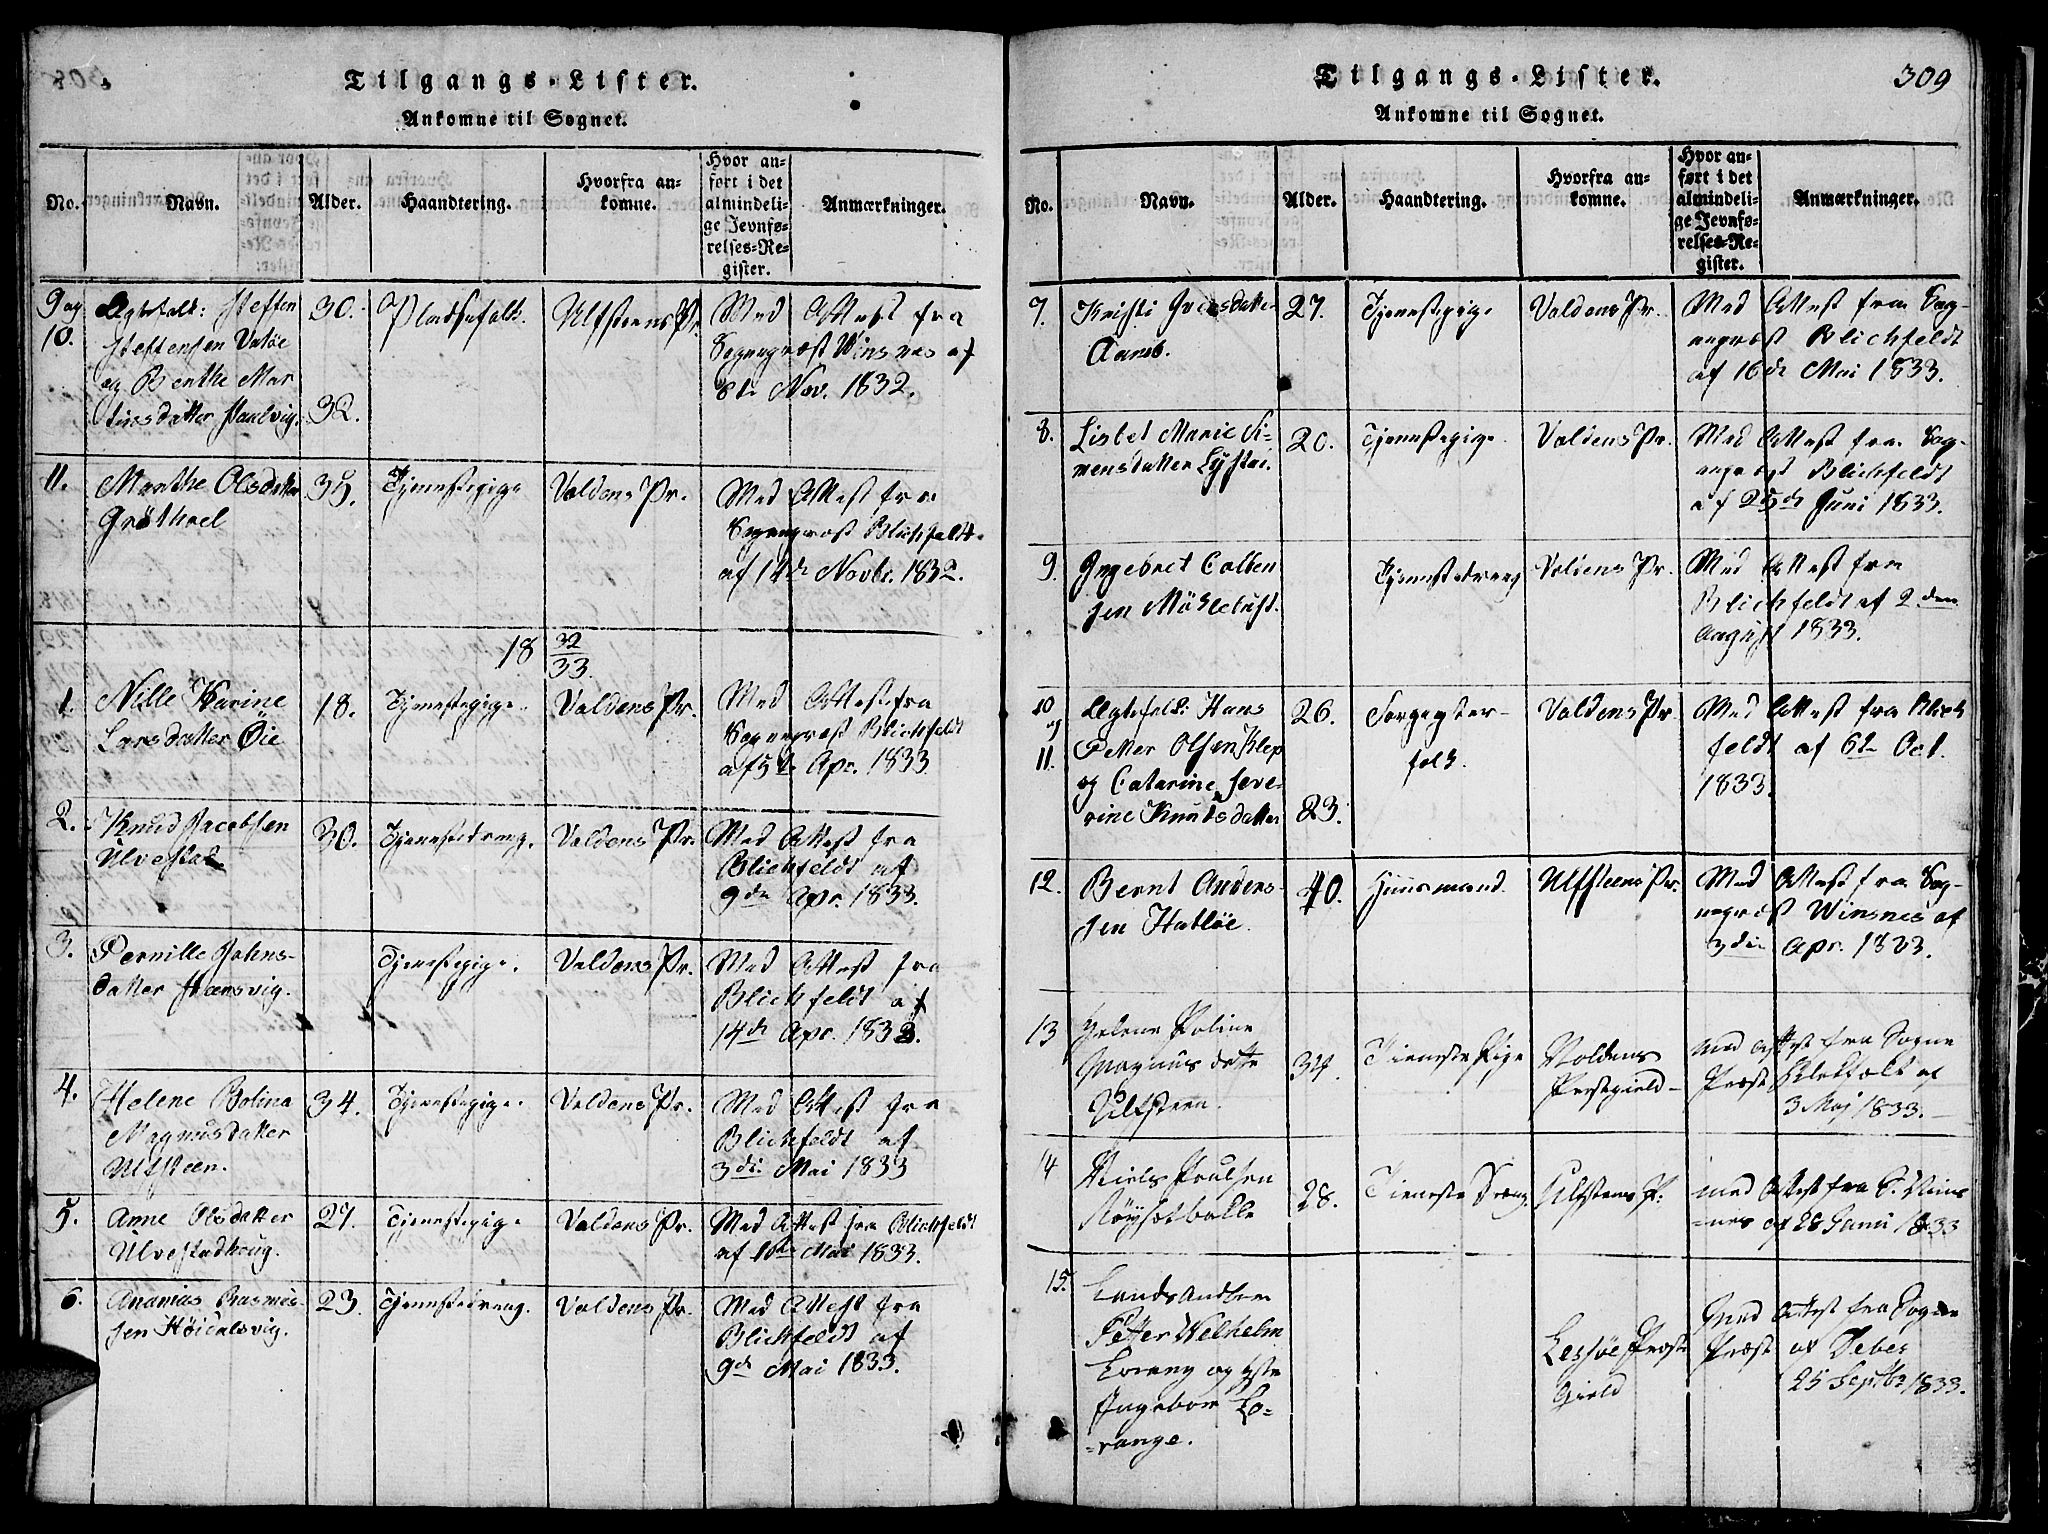 Tilgangs-Lister.
Ankomne til Sognet.
No.
Navn.
Alder.
Haandtering.
Hvorfra an=
komne.
Hvor an=
ført i det
almindeli=
ge Jevnfø=
relses=Re=
gister.
Anmærkninger.
9 og
10.
Ægtefolk: Steffen
Steffensen
og Benthe Mar
tinsdatter
30.
32.
Pladsefolk.
Ulfsteens Pr.
Med Attest fra
Sognepræst Winsnes af
8de Nov. 1832.
11.
Marthe Olsdatter
Grøthoel
35.
Tjenestepige
Voldens Pr.
Med Attest fra
Sognepræst Blichfeldt
af 14de Novbr. 1832.
18 32
33.
1.
Nille Karine
Larsdatter Öie
18.
Tjenestepige.
Voldens Pr.
Med Attest fra
Sognepræst Blichfeldt
af 5te Apr. 1833
2.
Knud Jacobsen
Ulvestad
30.
Tjenestedreng.
Voldens Pr.
Med Attest fra
Blichfeldt af
9de Apr. 1833.
3.
Pernille Johns-
datter
Tjenestepige.
Voldens Pr.
Med Attest fra
Blichfeldt af
14de Apr. 1833.
4.
Helene Bolina
Magnusdatter
Ulfsteen.
34.
Tjenestepige.
Voldens Pr.
Med Attest fra
Blichfeldt af
3die Mai 1833
5.
Anne Olsdatter
Ulvestadhoug.
27.
Tjenestepige
Voldens Pr.
Med Attest fra Blichfeldt
af Mai 1833.
6.
Ananias Rasmus-
sen Höidalsvig.
23.
Tjenestedreng.
Voldens Pr.
Med Attest fra
Blichfeldt af
9de Mai 1833.
Tilgangs-Lister.
309
Ankomne til Sognet.
No.
Navn.
Alder.
Haandtering.
Hvorfra an=
komne.
Hvor an=
ført i det
almindeli=
ge Jevnfø=
relses=Re=
gister.
Anmærkninger.
7.
Kristi
Aamb.
27.
Tjenestepige
Voldens Pr.
Med Attest fra Sog-
nepræst Blichfeldt
af 16de Mai 1833.
8.
Lisbet Marie Si-
mensdatter
20.
Tjenestepige.
Voldens Pr.
Med Attest fra Sog-
nepræst Blichfeldt
af 25de Juni 1833.
9.
Ingebret Colben
sen Möklebust.
Tjenestedreng
Voldens Pr.
Med Attest fra
Blichfeldt af 2den
August 1833.
10
og
11.
Ægtefolk: Hans
Petter Olsen Klep
og Catarine Seve-
rine Knutsdatter
26.
23.
folk.
Voldens Pr.
Med Attest fra Blich
feldt af 6te Oct.
1833.
12.
Bernt Anders-
sen Hatlöe.
40.
Huusmand.
Ulfsteens Pr.
Med Attest fra Sog-
nepræst Winsnes af
3die Apr. 1833.
13
Helene Poline
Magnus datte
Ulfsteen.
34.
Tieneste Pige
Voldens
Præstegield-
med Attest fra Sogne
Præst af
3 Maj 1833.-
14
Niels Poulsen
28.
Tieneste Dreng
Ulfstens P:
med Attest fra S. Vins
=nes af 28 Juni 1833
15.
Petter Wilhelm
Lorang og
Ingebor Lo=
=range.
Lessöe Præste
Gield
med Attest fra Sogne
Præst
25 Septbr 1833.